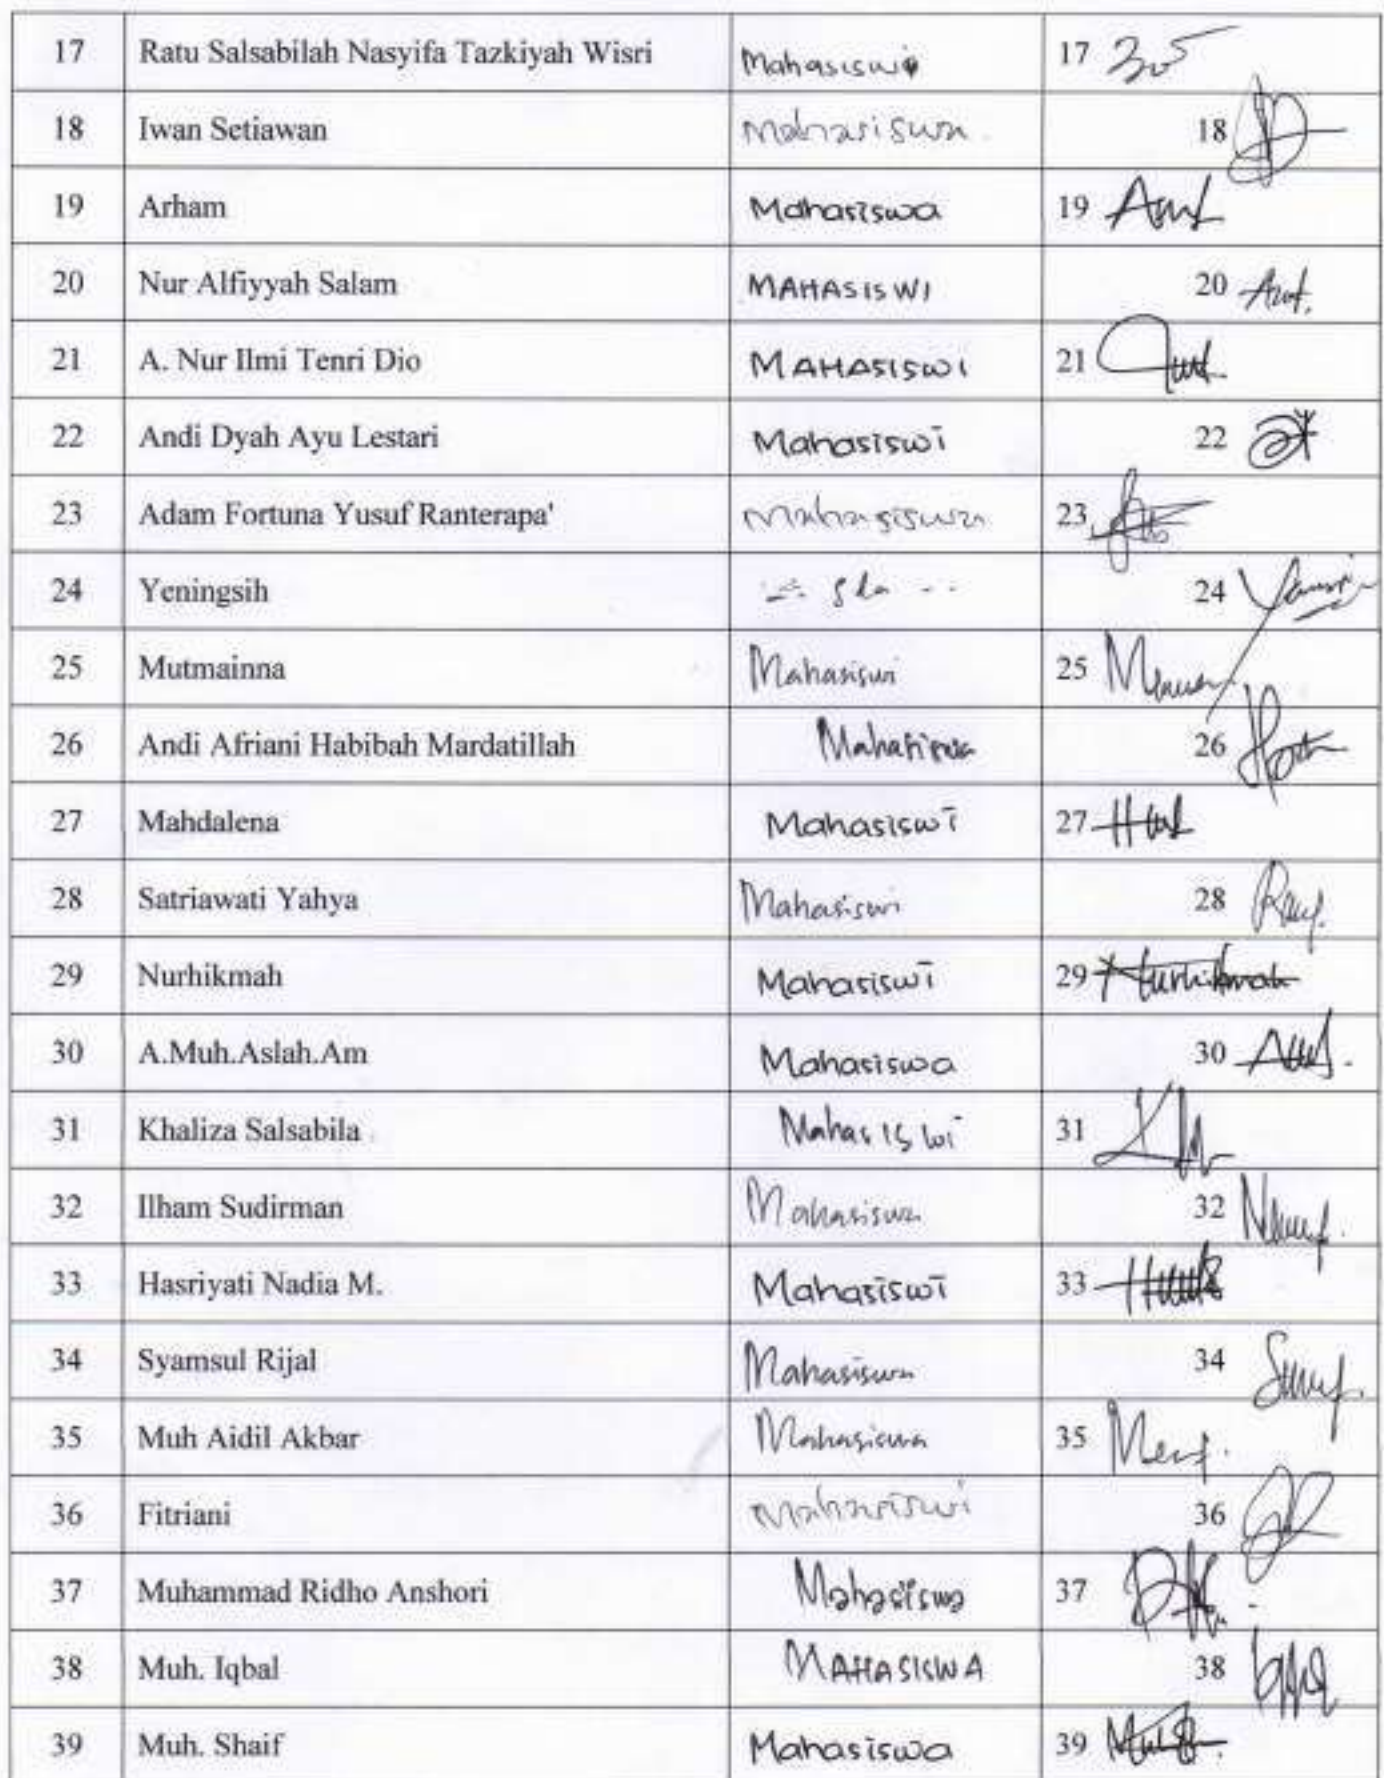 17 Ratu Salsabilah Nasyifa Tazkiyah Wisri Mahasiswi 17
18 Iwan Setiawan Mahasiswa 18
19 Arham Mahasiswa 19
20 Nur Alfiyyah Salam MAHASISWI 20
21 A. Nur Ilmi Tenri Dio MAHASISWI 21
22 Andi Dyah Ayu Lestari Mahasiswi 22
23 Adam Fortuna Yusuf Ranterapa' Mahasiswa 23
24 Yeningsih sda 24
25 Mutmainna Mahasiswi 25
26 Andi Afriani Habibah Mardatillah Mahasiswa 26
27 Mahdalena Mahasiswi 27
28 Satriawati Yahya Mahasiswi 28
29 Nurhikmah Mahasiswi 29 Nurhikmah
30 A.Muh.Aslah.Am Mahasiswa 30
31 Khaliza Salsabila Mahasiswi 31
32 Ilham Sudirman Mahasiswa 32
33 Hasriyati Nadia M. Mahasiswi 33
34 Syamsul Rijal Mahasiswa 34
35 Muh Aidil Akbar Mahasiswa 35
36 Fitriani Mahasiswi 36
37 Muhammad Ridho Anshori Mahasiswa 37
38 Muh. Iqbal MAHASISWA 38
39 Muh. Shaif Mahasiswa 39